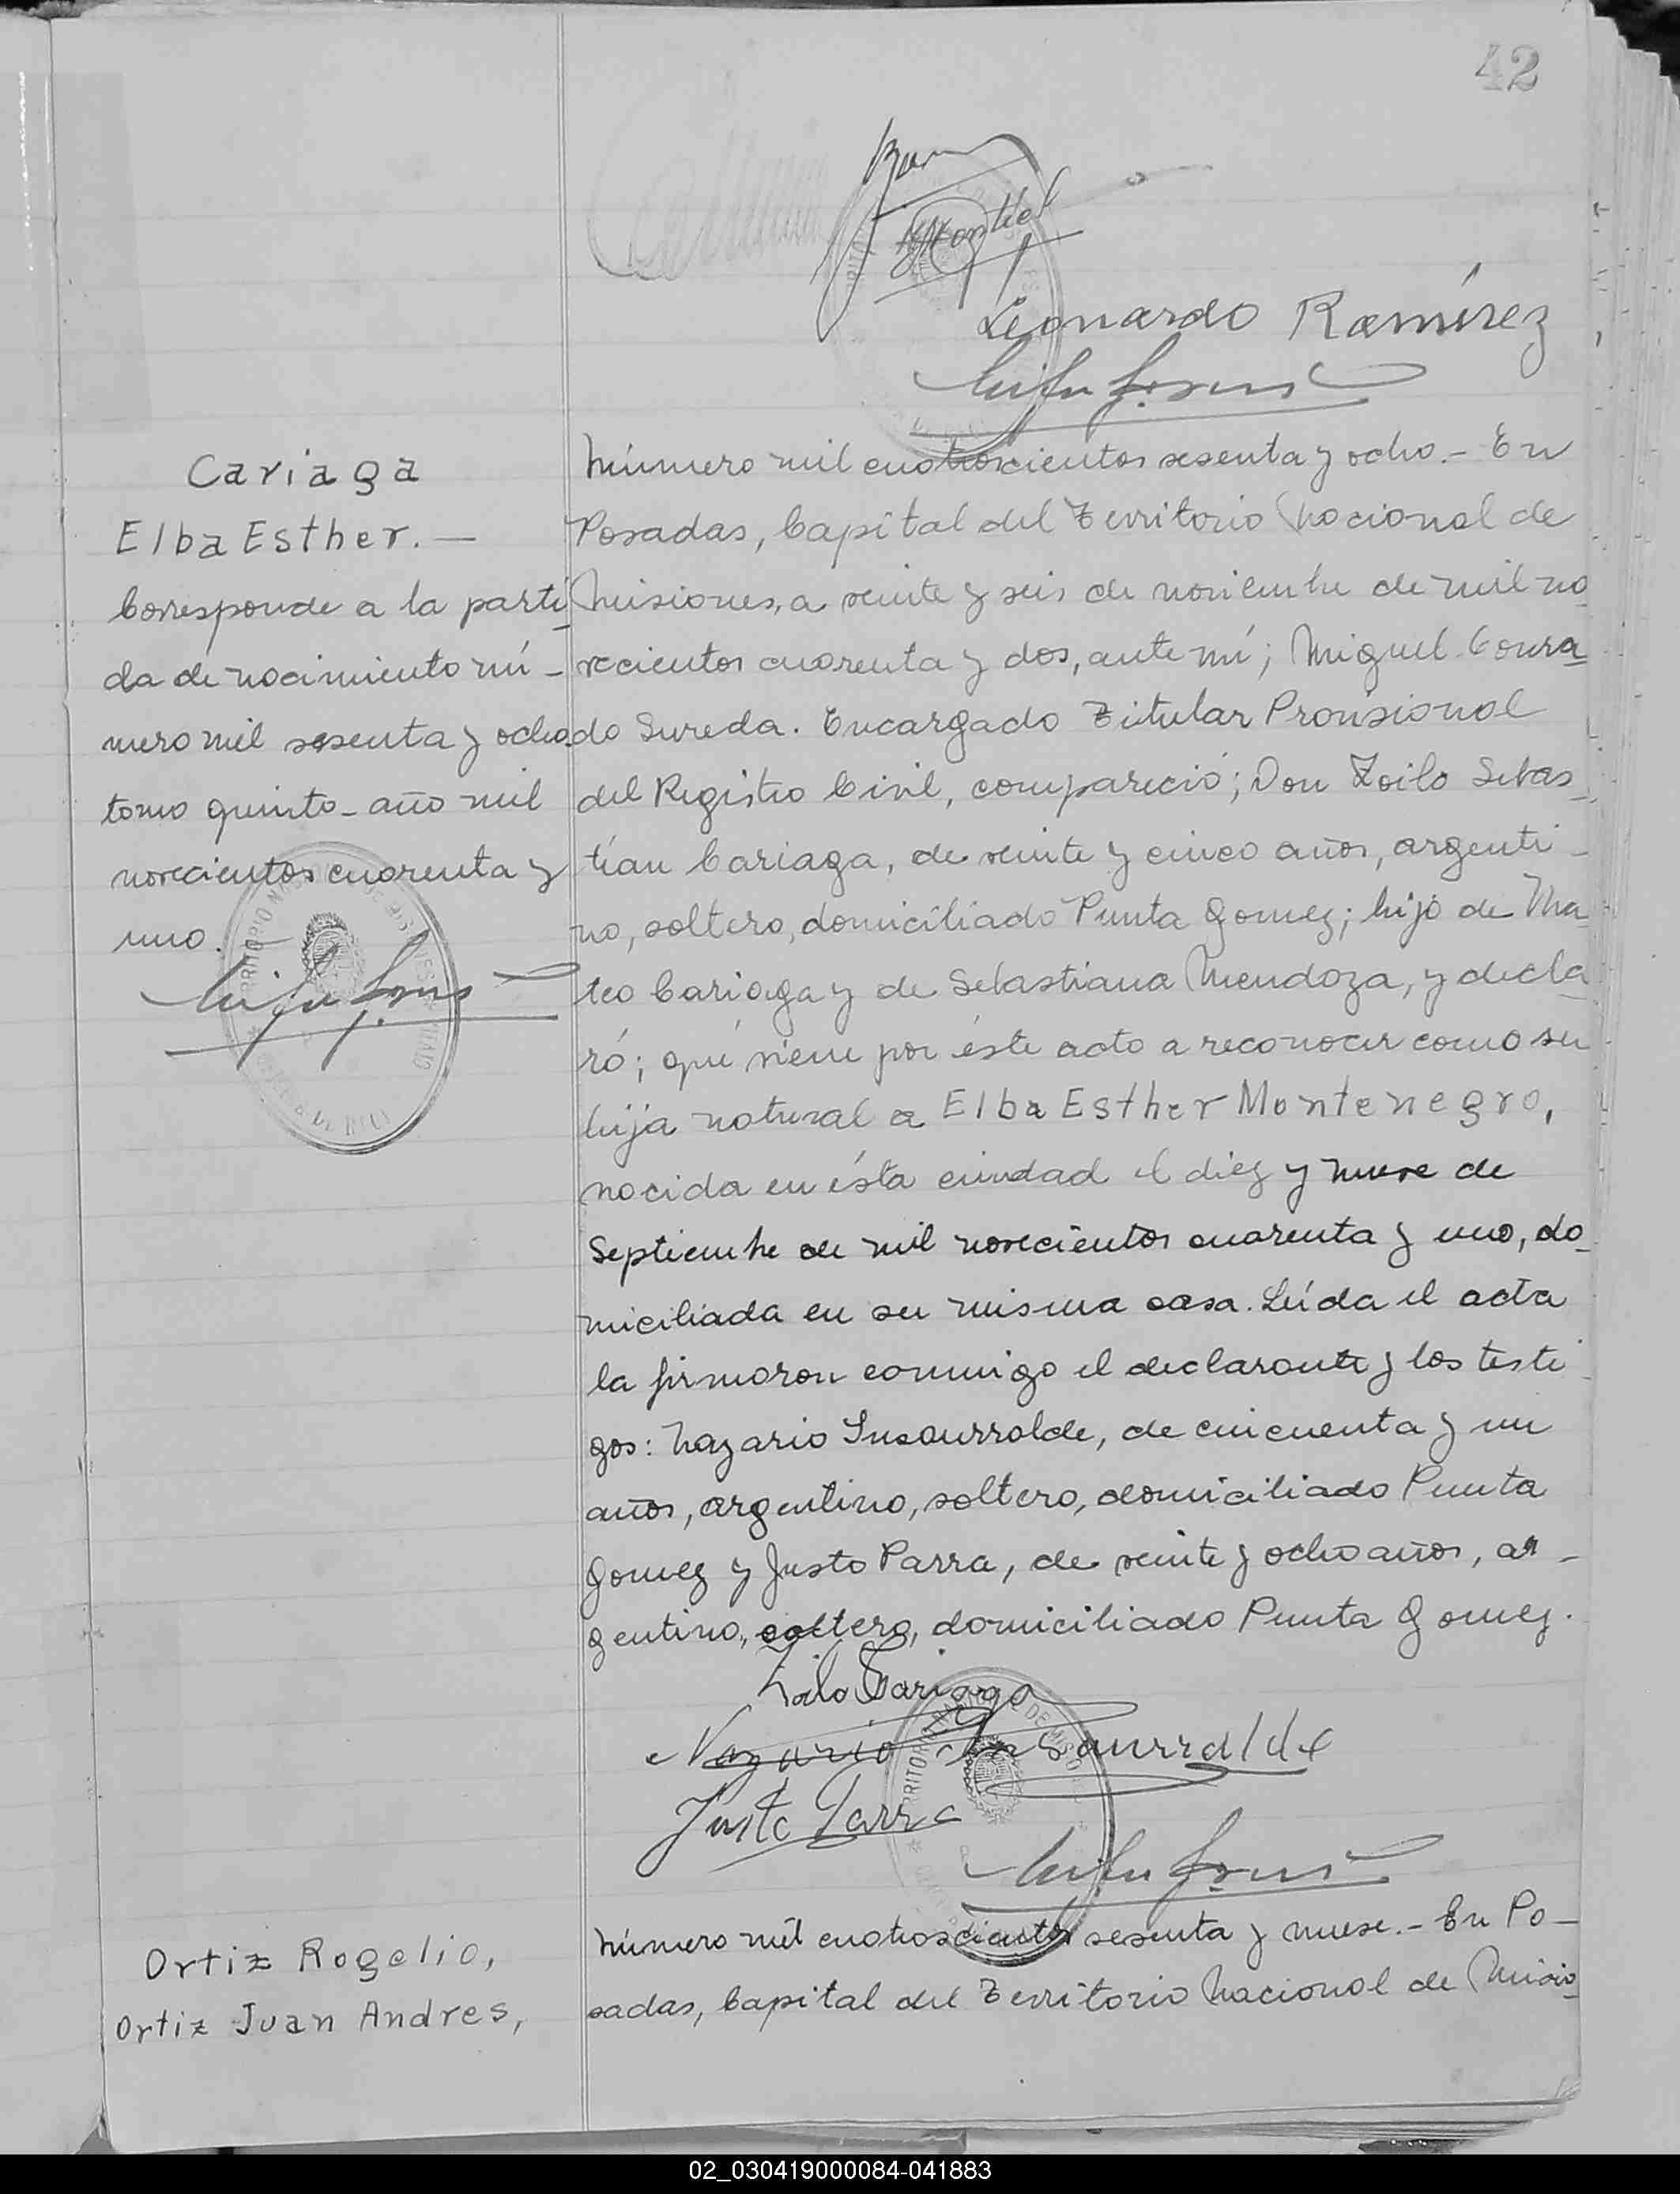 42
Montiel
Leonardo Ramírez
Cariaga
Elba Esther. —
Corresponde a la parti-
da de nacimiento nú-
mero mil sesenta y ocho.
tomo quinto - año mil
novecientos cuarenta y
uno. —
Número mil cuatroscientos sesenta y ocho. - En
Posadas, Capital del Territorio Nacional de
Misiones, a veinte y seis de noviembre de mil no-
vecientos cuarenta y dos, ante mí; Miguel Conra-
do Sureda. Encargado Titular Provisional
del Registro Civil, compareció; Don Zoilo Sebas-
tían Cariaga, de veinte y cinco años, argenti-
no, soltero, domiciliado Punta Gomez; hijo de Ma-
teo Cariaga y de Sebastiana Mendoza, y decla-
ró; que viene por éste acto a reconocer como su
hija natural a Elba Esther Montenegro,
nacida en ésta ciudad el diez y nueve de
Septiembre de mil novecientos cuarenta y uno, do-
miciliada en su misma casa. Leída el acta
la firmaron conmigo el declarante y los testi-
gos: Nazario Insaurralde, de cincuenta y un
años, argentino, soltero, domiciliado Punta
Gomez y Justo Parra, de veinte y ocho años, ar-
gentino, soltero, domiciliado Punta Gomez.
Zoilo Cariaga
Nazario Insaurralde
Justo Parra
Ortiz Rogelio,
Ortiz Juan Andres,
Número mil cuatroscientos sesenta y nueve. - En Po-
sadas, Capital del Territorio Nacional de Misio-
02_030419000084-041883